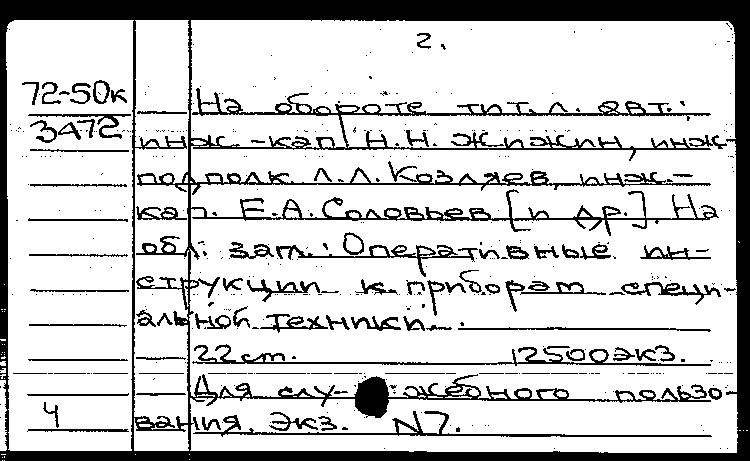 2.
72-50к
3472
На обороте тит. л. авт.:
инж.-кап. Н.Н. Жижин, инж.-
подполк. Л.Л. Козляев, инж.-
кап. Е.А. Соловьев [и др.]. На
обл. загл.: Оперативные ин-
струкции к приборам специ-
альной техники.
22 см. 12500 экз.
Для слу-жебного пользо-
4 вания. Экз. N7.